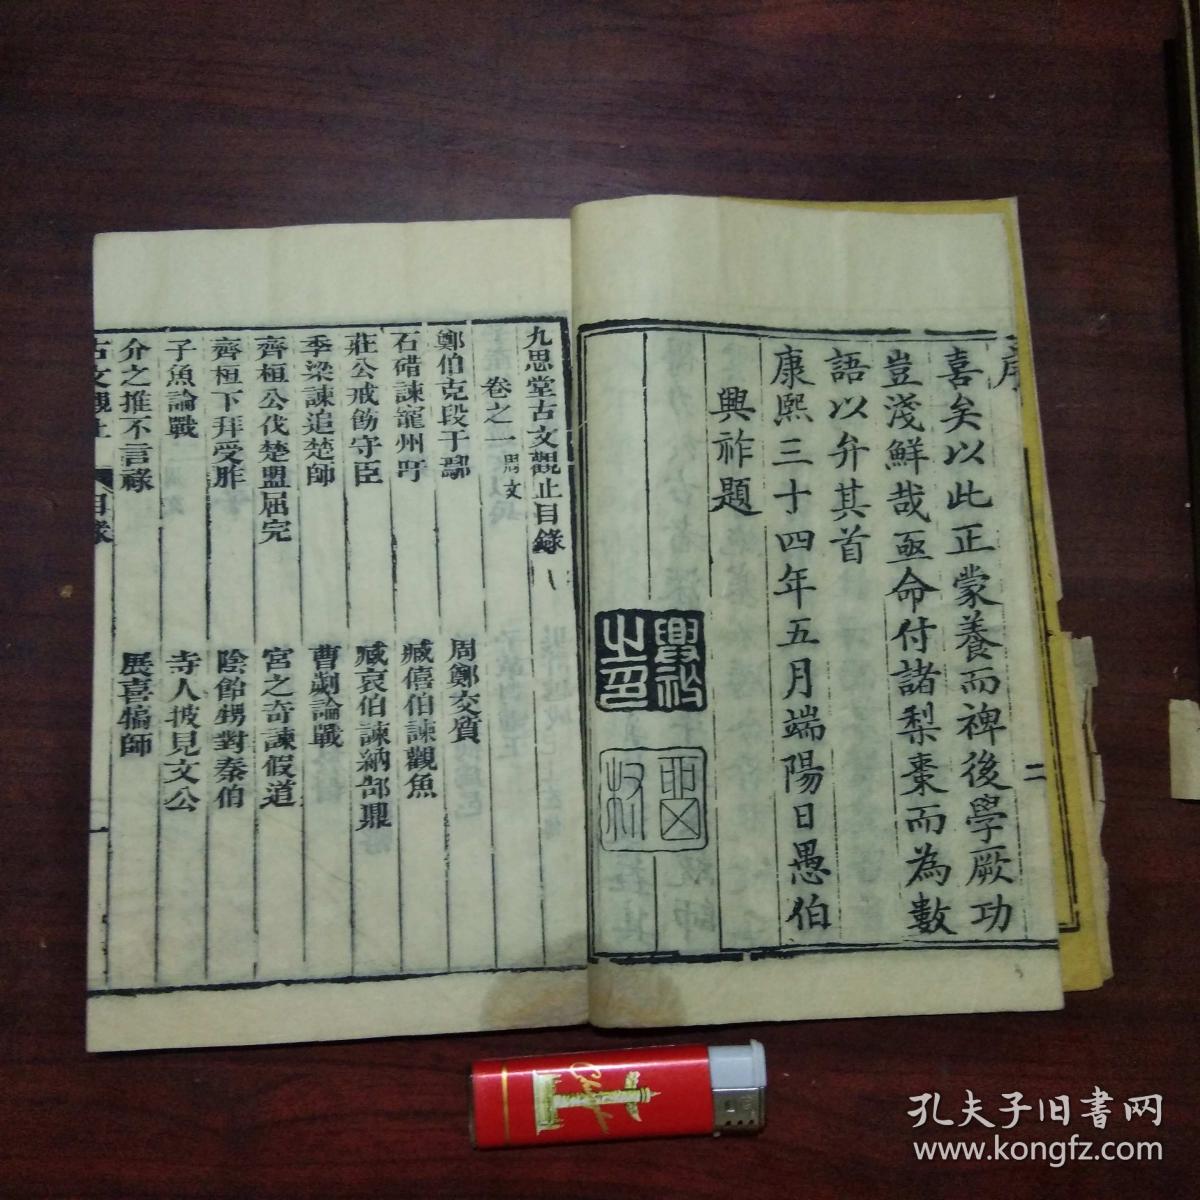 序
二
喜矣以此正蒙養而裨後學厥功
豈淺鮮哉亟命付諸梨棗而為數
語以弁其首
康熙三十四年五月端陽日愚伯
興祚題
興祚之印
九思堂古文觀止目錄
卷之一 周文
鄭伯克段于鄢 周鄭交質
石碏諫寵州吁 臧僖伯諫觀魚
莊公戒飭守臣 臧哀伯諫納郜鼎
季梁諫追楚師 曹劌論戰
齊桓公伐楚盟屈完 宮之奇諫假道
齊桓下拜受胙 陰飴甥對秦伯
子魚論戰 寺人披見文公
介之推不言祿 展喜犒師
古文觀止 目錄 一
孔夫子旧書网
www.kongfz.com